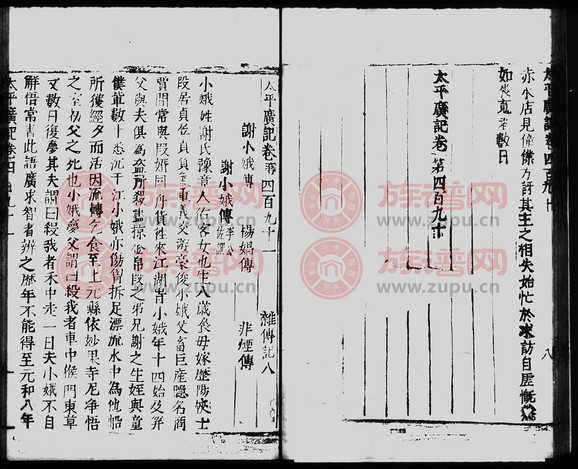 太平廣記卷四百九十
亦at店見僮僕方訝其主之相失始忙於求訪自虛慨然
如喪魂者數日
太平廣記卷第四百九十
太平廣記卷第四百九十一
雜傳記八
謝小娥傳 楊娼傳 非煙傳
謝小娥傳 李公佐撰
小娥姓謝氏豫章人估客女也生八歲喪母嫁歷陽俠士
段居貞居貞負氣重義交遊豪俊小娥父畜巨產隱名商
賈間常與段婿同舟貨往來江湖時小娥年十四始及笄
父與夫俱為盜所殺盡掠金帛段之弟兄謝之生姪與童
僕輩數十悉沉于江小娥亦傷胸折足漂流水中為他船
所獲經夕而活因流轉乞食至上元縣依妙果寺尼淨悟
之室初父之死也小娥夢父謂曰殺我者車中猴門東草
又數日復夢其夫謂曰殺我者禾中走一日夫小娥不自
解悟常書此語廣求智者辨之歷年不能得至元和八年
太平廣記卷四百九十一
族谱网
www.zupu.cn
族谱网
www.zupu.cn
族谱网
www.zupu.cn
族谱网
www.zupu.cn